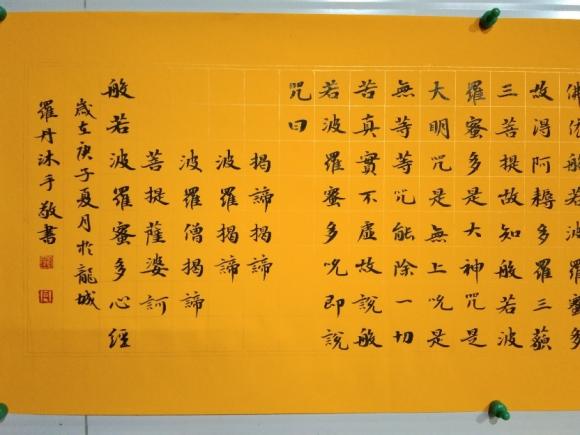 佛依般若波羅蜜多
故得阿耨多羅三藐
三菩提故知般若波
羅蜜多是大神咒是
大明咒是無上咒是
無等等咒能除一切
苦真實不虛故說般
若波羅蜜多咒即說
咒曰
揭諦揭諦
波羅揭諦
波羅僧揭諦
菩提薩婆訶
般若波羅蜜多心經
歲在庚子夏月於龍城
羅丹沐手敬書